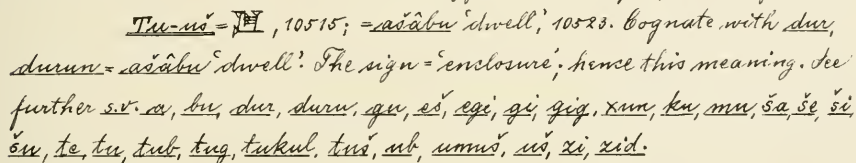 Tu-uš = 𒂠, 10515; = ašâbu 'dwell', 10523. Cognate with dur,
durun = ašâbu 'dwell'. The sign = 'enclosure'; hence this meaning. See
further s.v. a, bu, dur, duru, gu, eš, egi, gi, gig, xun, ku, mu, ša, še, ši
šu, te, tu, tub, tug, tukul, tuš, ub, umuš, uš, zi, zid.